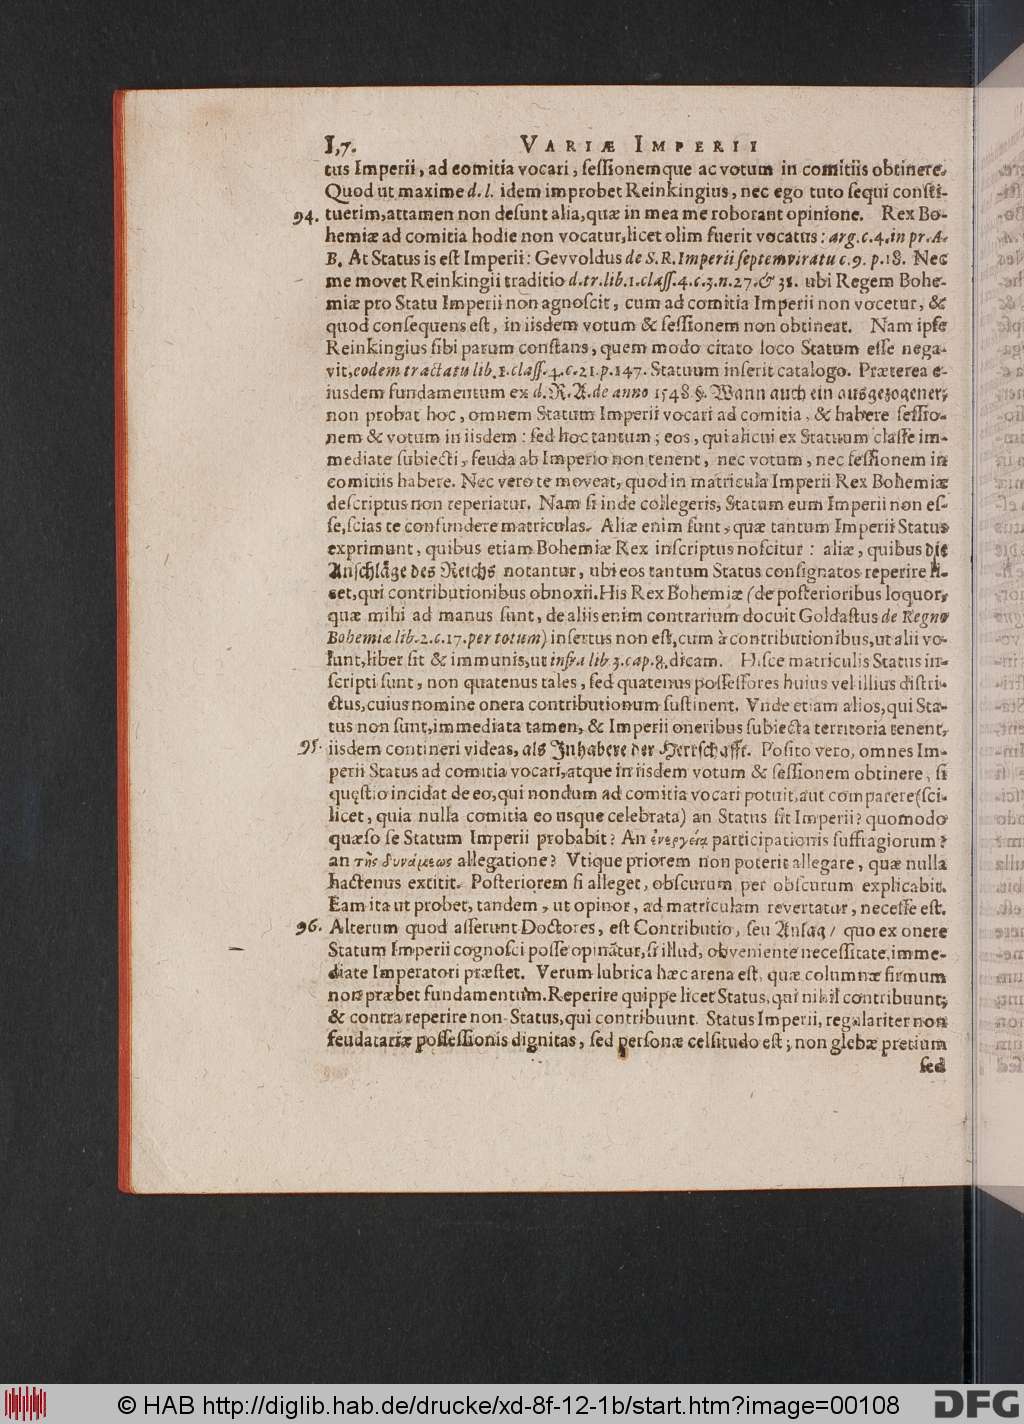 I,7. VARIÆ IMPERII
tus Imperii, ad comitia vocari, ſeſſionemque ac votum in comitiis obtinere.
Quod ut maxime d. l. idem improbet Reinkingius, nec ego tuto ſequi conſti-
94. tuerim, attamen non deſunt alia, quæ in mea me roborant opinione. Rex Bo-
hemiæ ad comitia hodie non vocatur, licet olim fuerit vocatus: arg. c. 4. in pr. A.
B. At Status is eſt Imperii: Gevvoldus de S. R. Imperii ſeptemviratu c. 9. p. 18. Nec
me movet Reinkingii traditio d. tr. lib. 1. claſſ. 4. c. 3. n. 27. & 31. ubi Regem Bohe-
miæ pro Statu Imperii non agnoſcit, cum ad comitia Imperii non vocetur, &
quod conſequens eſt, in iisdem votum & ſeſſionem non obtineat. Nam ipſe
Reinkingius ſibi parum conſtans, quem modo citato loco Statum eſſe nega-
vit, eodem tractatu lib. 1. claſſ. 4. c. 21. p. 147. Statuum inſerit catalogo. Præterea e-
iusdem fundamentum ex d. R. A. de anno 1548 §. Wann auch ein ausgezogener,
non probat hoc, omnem Statum Imperii vocari ad comitia, & habere ſeſſio-
nem & votum in iisdem: ſed hoc tantum; eos, qui alicui ex Statuum claſſe im-
mediate ſubiecti, feuda ab Imperio non tenent, nec votum, nec ſeſſionem in
comitiis habere. Nec vero te moveat, quod in matricula Imperii Rex Bohemiæ
deſcriptus non reperiatur. Nam ſi inde collegeris, Statum eum Imperii non eſ-
ſe, ſcias te confundere matriculas. Aliæ enim ſunt, quæ tantum Imperii Status
exprimunt, quibus etiam Bohemiæ Rex inſcriptus noſcitur: aliæ, quibus die
Anſchläge des Reichs notantur, ubi eos tantum Status conſignatos reperire li-
cet, qui contributionibus obnoxii. His Rex Bohemiæ (de poſterioribus loquor,
quæ mihi ad manus ſunt, de aliis enim contrarium docuit Goldaſtus de Regno
Bohemiæ lib. 2. c. 17. per totum) inſertus non eſt, cum à contributionibus, ut alii vo-
lunt, liber ſit & immunis, ut infra lib 3. cap. 8. dicam. Hiſce matriculis Status in-
ſcripti ſunt, non quatenus tales, ſed quatenus poſſeſſores huius vel illius diſtri-
ctus, cuius nomine onera contributionum ſuſtinent. Vnde etiam alios, qui Sta-
tus non ſunt, immediata tamen, & Imperii oneribus ſubiecta territoria tenent,
95. iisdem contineri videas, als Inhabere der Herrſchafft. Poſito vero, omnes Im-
perii Status ad comitia vocari, atque in iisdem votum & ſeſſionem obtinere, ſi
quęſtio incidat de eo, qui nondum ad comitia vocari potuit, aut comparere (ſci-
licet, quia nulla comitia eo usque celebrata) an Status ſit Imperii? quomodo
quæſo ſe Statum Imperii probabit? An ἐνεργείᾳ participationis ſuffragiorum?
an τῆς δυνάμεως allegatione? Vtique priorem non poterit allegare, quæ nulla
hactenus extitit. Poſteriorem ſi alleget, obſcurum per obſcurum explicabit.
Eam ita ut probet, tandem, ut opinor, ad matriculam revertatur, neceſſe eſt.
96. Alterum quod aſſerunt Doctores, eſt Contributio, ſeu Anlag / quo ex onere
Statum Imperii cognoſci poſſe opinãtur, ſi illud, obveniente neceſſitate, imme-
diate Imperatori præſtet. Verum lubrica hæc arena eſt, quæ columnæ firmum
non præbet fundamentum. Reperire quippe licet Status, qui nihil contribuunt;
& contra reperire non-Status, qui contribuunt. Status Imperii, regulariter non
feudatariæ poſſeſſionis dignitas, ſed perſonæ celſitudo eſt; non glebæ pretium
ſed
© HAB http://diglib.hab.de/drucke/xd-8f-12-1b/start.htm?image=00108
DFG